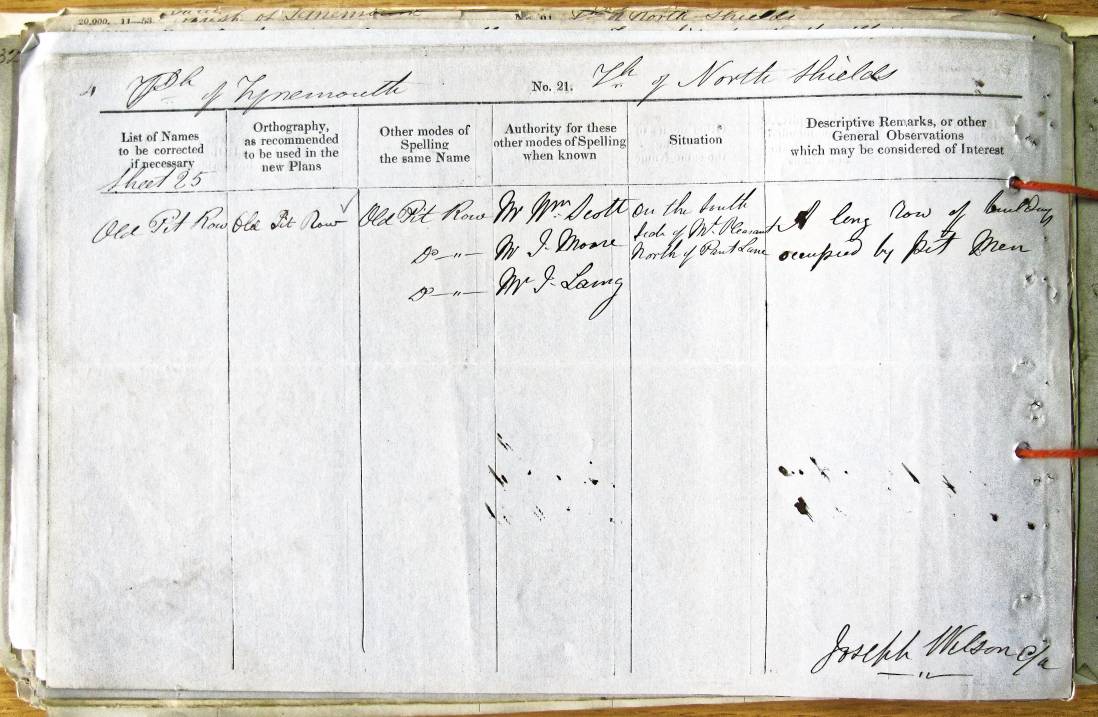 20,000. 11—53.
4 Psh of Tynemouth No. 21. Tp of North Shields
List of Names to be corrected if necessary
Orthography, as recommended to be used in the new Plans
Other modes of Spelling the same Name
Authority for these other modes of Spelling when known
Situation
Descriptive Remarks, or other General Observations which may be considered of Interest
Sheet 25
Old Pit Row
Old Pit Row ✓
Old Pit Row
Do —"—
Do —"—
Mr Wm Scott
Mr J. Moore
Mr J. Laing
On the South
Side of Mt. Pleasant
North of Pant Lane
A long row of buildings
occupied by pit Men
Joseph Wilson c/a